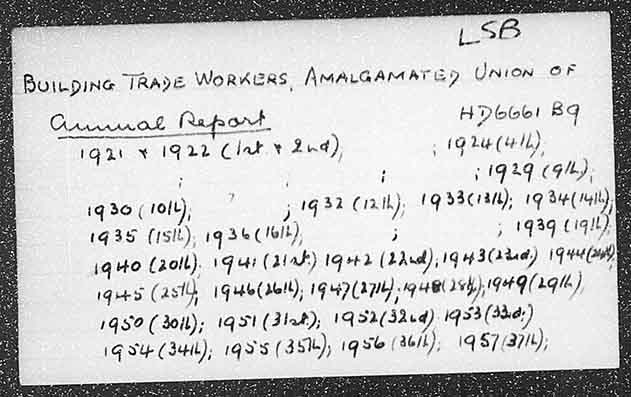 LSB
BUILDING TRADE WORKERS, AMALGAMATED UNION OF
Annual Report HD6661 B9
1921 & 1922 (1st & 2nd), ; 1924 (4th),
; ; ; 1929 (9th),
1930 (10th), ; 1932 (12th), 1933 (13th); 1934 (14th),
1935 (15th), 1936 (16th), ; ; 1939 (19th),
1940 (20th), 1941 (21st) 1942 (22nd), 1943 (23rd) 1944 (24th),
1945 (25th), 1946 (26th); 1947 (27th); 1948 (28th); 1949 (29th),
1950 (30th); 1951 (31st); 1952 (32nd) 1953 (33rd)
1954 (34th); 1955 (35th); 1956 (36th); 1957 (37th);